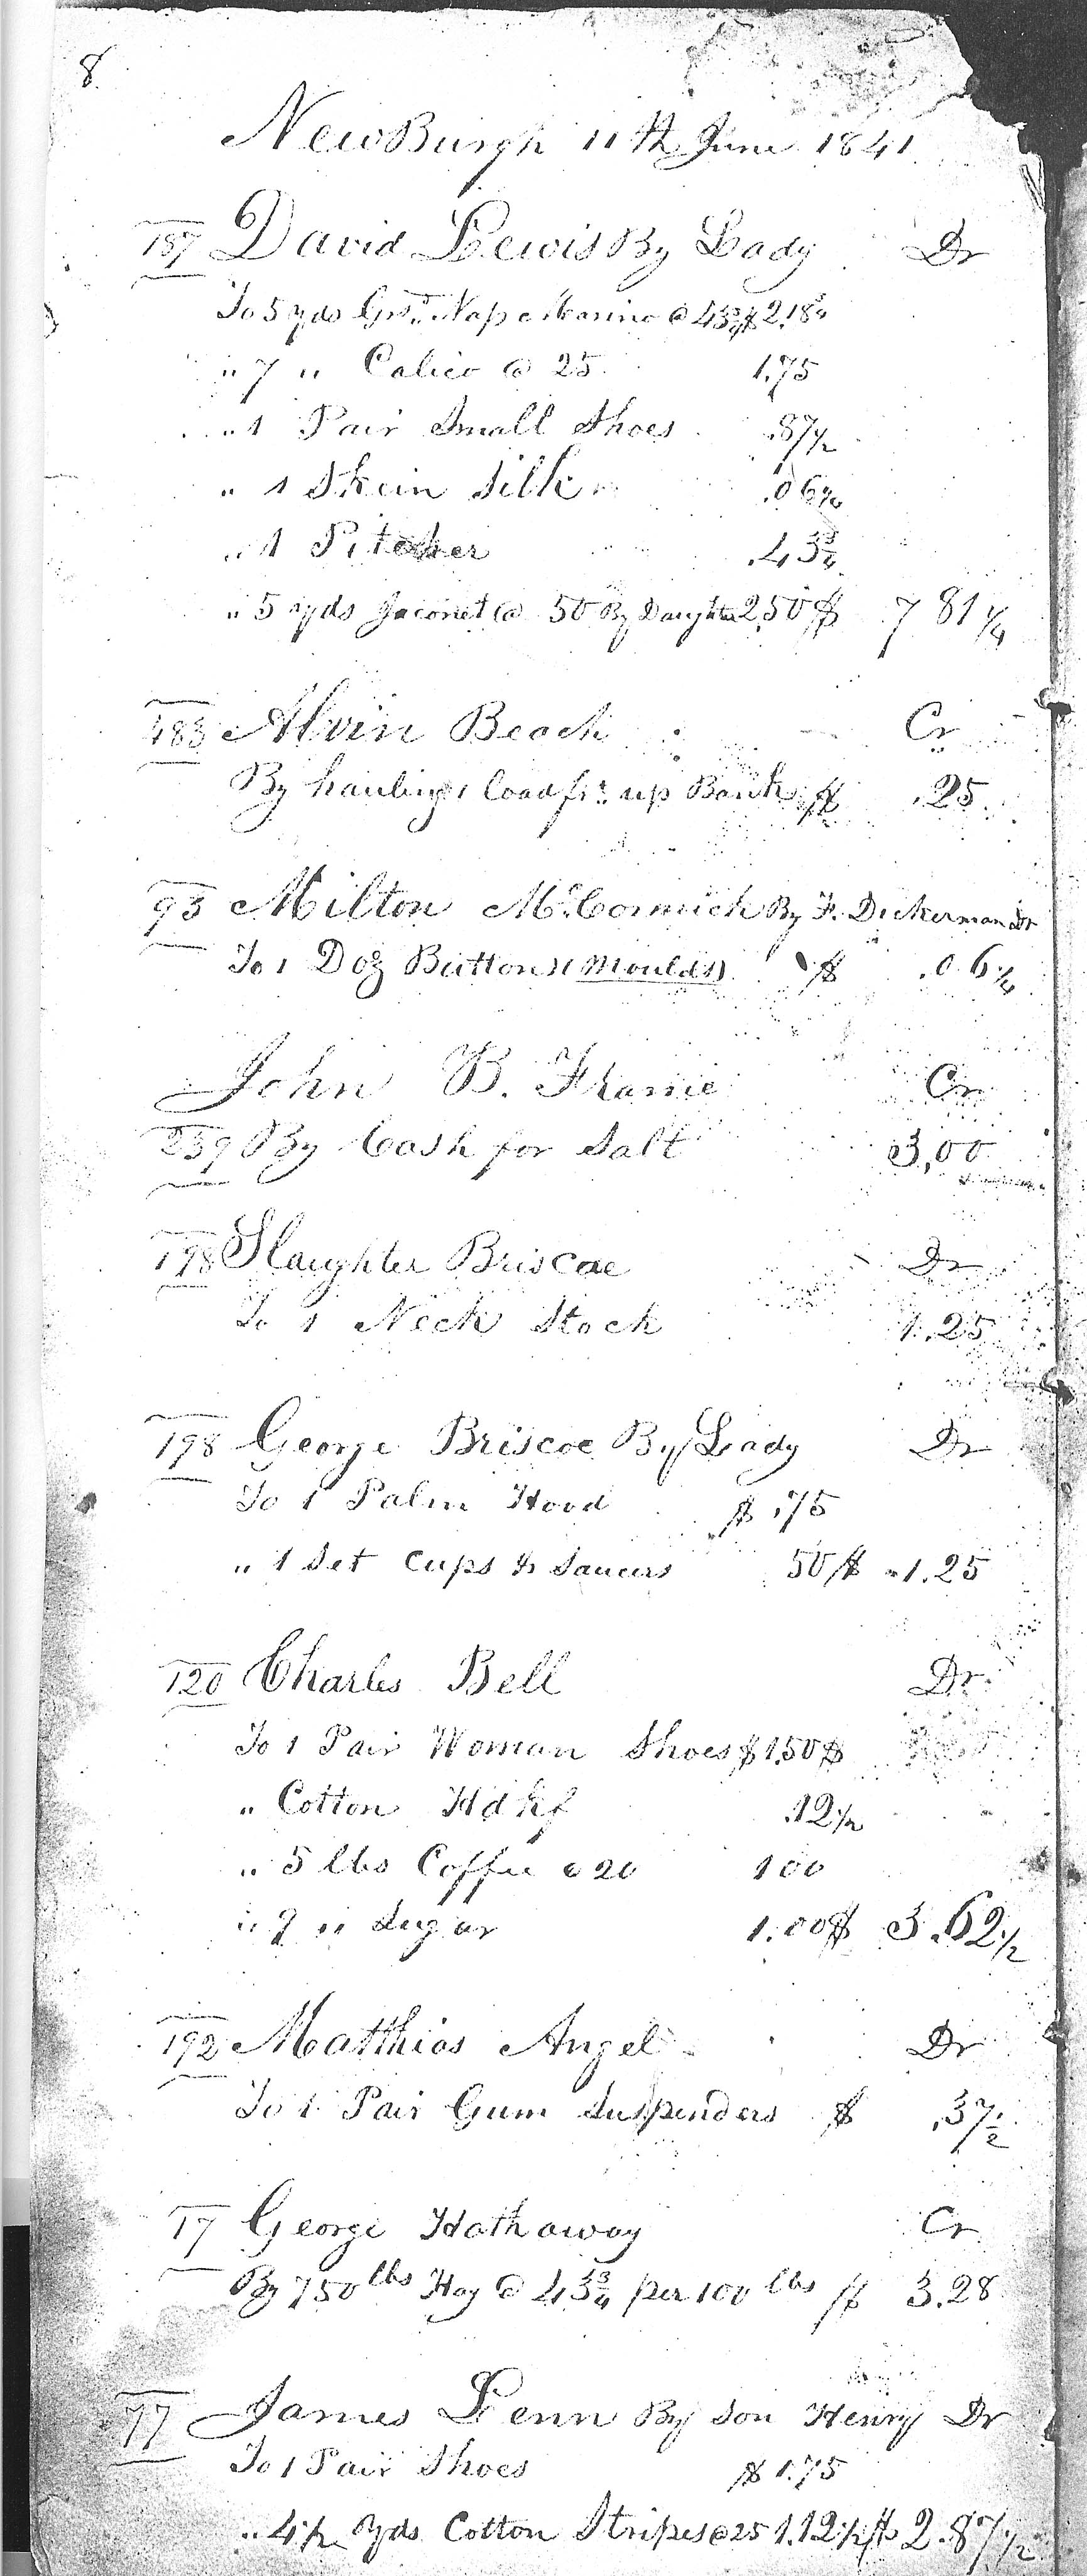 8
NewBurgh 11th June 1841
187 David Lewis By Lady Dr
To 5 yds Grs. Nap Marino @ 43¾ $2.18¾
" 7 " Calico @ 25 1.75
" 1 Pair Small Shoes .87½
" 1 Skein Silk .06¼
" 1 Pitcher .43¾
" 5 yds Jaconet @ 50 By Daughter 2,50 $ 7 81¼
483 Alvin Beach Cr
By hauling 1 load fr. up Bank $ .25
93 Milton McCormick By F. Dickerman Dr
To 1 Doz Buttons (Moulds) $ .06¼
John B. Frame Cr
239 By Cash for Salt 3,00
198 Slaughter Briscoe Dr
To 1 Neck Stock 1.25
198 George Briscoe By Lady Dr
To 1 Palm Hood $ .75
" 1 Set Cups & Saucers 50 $ 1.25
120 Charles Bell Dr
To 1 Pair Woman Shoes $1.50 $
" Cotton Hdkf .12½
" 5 lbs Coffee @ 20 1 00
" 9 " Sugar 1.00 $ 3.62½
192 Matthias Angel Dr
To 1 Pair Gum Suspenders $ .37½
17 George Hathaway Cr
By 750 lbs Hay @ 43¾ per 100 lbs $ 3.28
77 James Lenn By Son Henry Dr
To 1 Pair Shoes $ 1.75
" 4½ Yds Cotton Stripes @ 25 1.12½ $ 2.87½